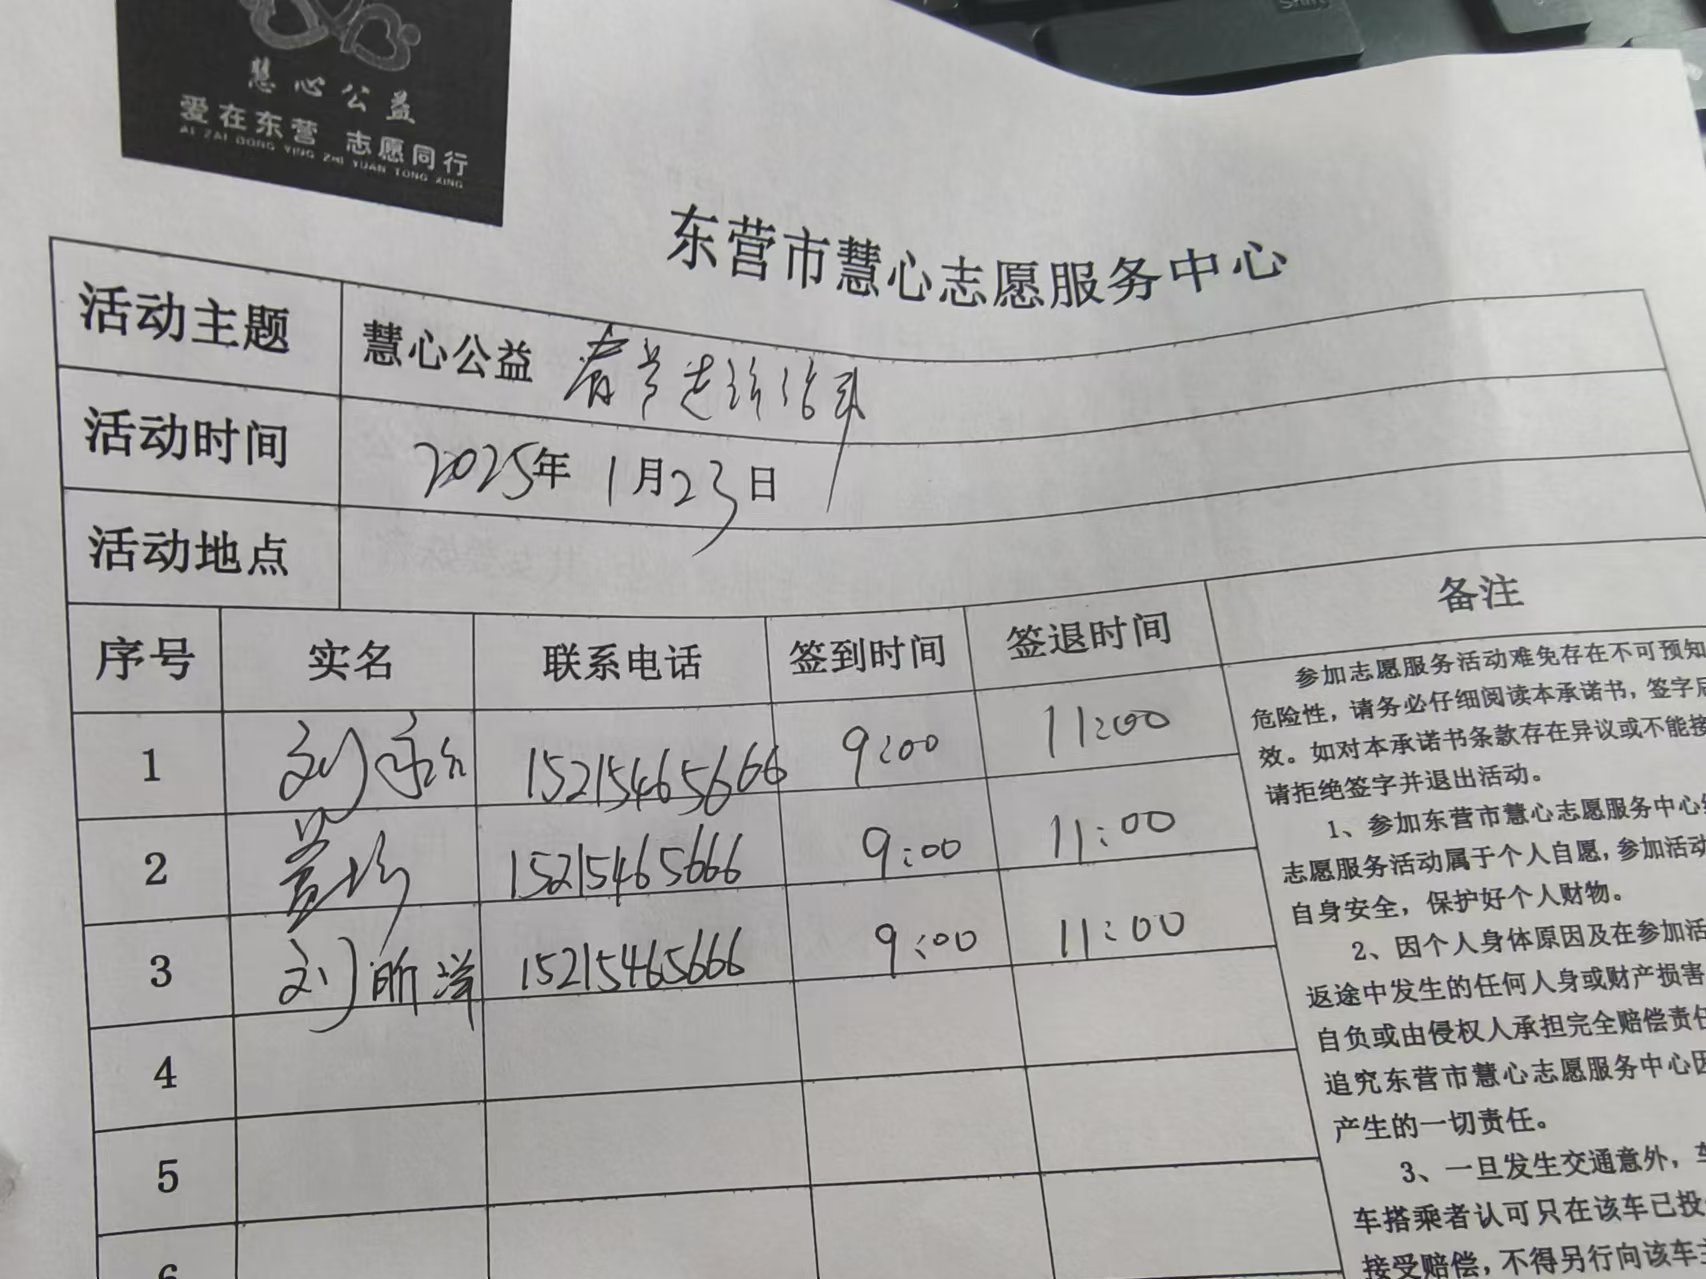 慧心公益
爱在东营 志愿同行
AI ZAI DONG YING ZHI YUAN TONG XING
东营市慧心志愿服务中心
活动主题 慧心公益 春节走访
活动时间 2025年1月23日
活动地点
序号 实名 联系电话 签到时间 签退时间 备注
1 刘 15215465666 9:00 11:00
2 15215465666 9:00 11:00
3 刘昕洋 15215465666 9:00 11:00
4
5
6
参加志愿服务活动难免存在不可预知
危险性，请务必仔细阅读本承诺书，签字后
效。如对本承诺书条款存在异议或不能接
请拒绝签字并退出活动。
1、参加东营市慧心志愿服务中心
志愿服务活动属于个人自愿，参加活动
自身安全，保护好个人财物。
2、因个人身体原因及在参加活
返途中发生的任何人身或财产损害
自负或由侵权人承担完全赔偿责任
追究东营市慧心志愿服务中心因
产生的一切责任。
3、一旦发生交通意外，车
车搭乘者认可只在该车已投
接受赔偿，不得另行向该车主